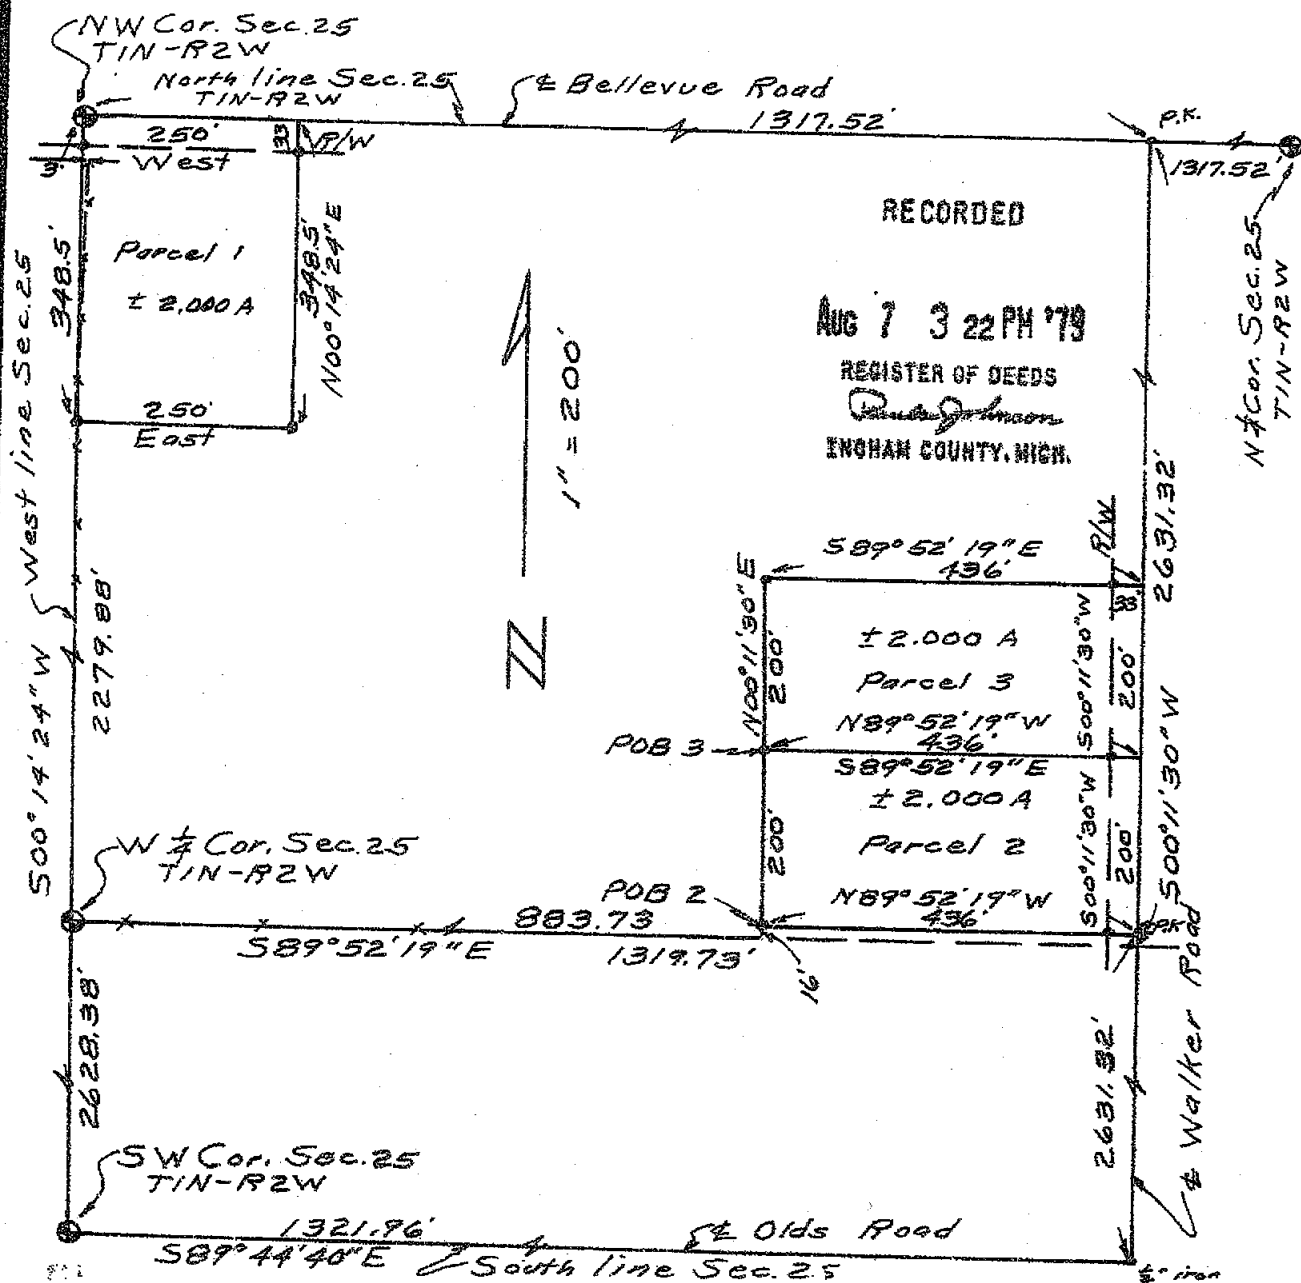 NW Cor. Sec. 25
T1N-R2W
North line Sec. 25
T1N-R2W
℄ Bellevue Road
1317.52'
P.K.
1317.52'
N ¼ Cor. Sec. 25
T1N-R2W
250'
West
33'
R/W
3'
348.5'
Parcel 1
± 2.000 A
348.5'
N00°14'24"E
250'
East
West line Sec. 25
S00°14'24"W
2279.88'
1" = 200'
N
RECORDED
AUG 7 3 22 PM '79
REGISTER OF DEEDS
Johnson
INGHAM COUNTY, MICH.
2631.32'
S89°52'19"E
436'
R/W
33'
N00°11'30"E
200'
± 2.000 A
Parcel 3
S00°11'30"W
200'
N89°52'19"W
436'
POB 3
S89°52'19"E
± 2.000 A
Parcel 2
200'
S00°11'30"W
200'
S00°11'30"W
N89°52'19"W
436'
POB 2
PK
W ¼ Cor. Sec. 25
T1N-R2W
883.73
S89°52'19"E
1319.73'
16'
2628.38'
2631.32'
℄ Walker Road
SW Cor. Sec. 25
T1N-R2W
1321.96'
S89°44'40"E
℄ Olds Road
South line Sec. 25
½" iron